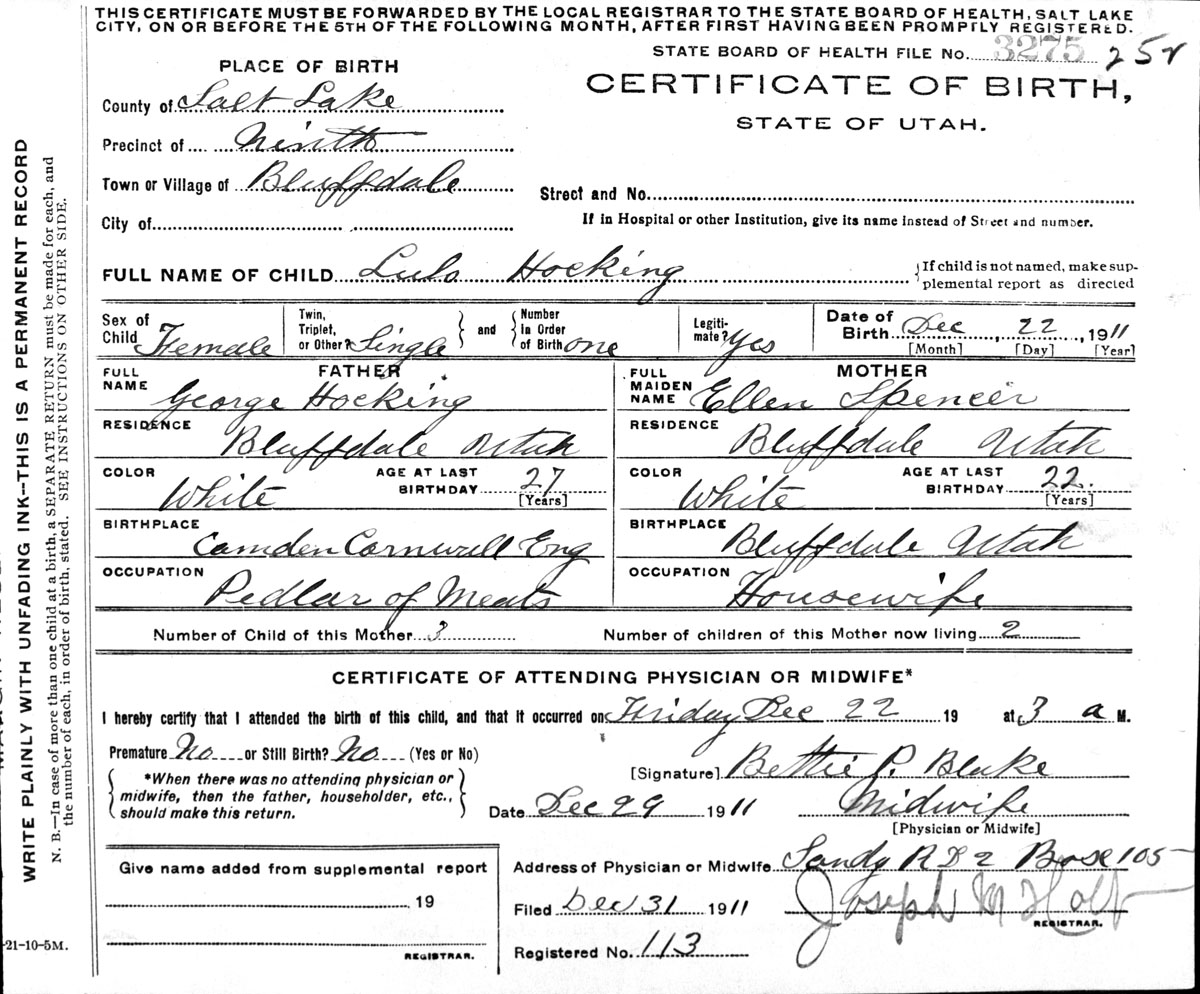 THIS CERTIFICATE MUST BE FORWARDED BY THE LOCAL REGISTRAR TO THE STATE BOARD OF HEALTH, SALT LAKE
CITY, ON OR BEFORE THE 5TH OF THE FOLLOWING MONTH, AFTER FIRST HAVING BEEN PROMPTLY REGISTERED.
STATE BOARD OF HEALTH FILE No. 3275 252
PLACE OF BIRTH
CERTIFICATE OF BIRTH,
STATE OF UTAH.
County of Salt Lake
Precinct of Ninth
Town or Village of Bluffdale
Street and No.
City of
If in Hospital or other Institution, give its name instead of Street and number.
FULL NAME OF CHILD Lula Hocking
If child is not named, make sup-
plemental report as directed
Sex of Child Female
Twin, Triplet, or Other? Single and Number In Order of Birth one
Legiti-mate? Yes
Date of Birth Dec 22, 1911
[Month] [Day] [Year]
FATHER
FULL NAME George Hocking
RESIDENCE Bluffdale Utah
COLOR White AGE AT LAST BIRTHDAY 27 [Years]
BIRTHPLACE Camden Cornwall Eng
OCCUPATION Pedlar of Meats
MOTHER
FULL MAIDEN NAME Ellen Spencer
RESIDENCE Bluffdale Utah
COLOR White AGE AT LAST BIRTHDAY 22. [Years]
BIRTHPLACE Bluffdale Utah
OCCUPATION Housewife
Number of Child of this Mother 3 Number of children of this Mother now living 2
CERTIFICATE OF ATTENDING PHYSICIAN OR MIDWIFE*
I hereby certify that I attended the birth of this child, and that it occurred on Friday Dec 22 19 at 3 a M.
Premature No or Still Birth? No (Yes or No)
*When there was no attending physician or
midwife, then the father, householder, etc.,
should make this return.
[Signature] Bettie P. Blake
Date Dec 29 1911 Midwife
[Physician or Midwife]
Give name added from supplemental report
19
REGISTRAR.
Address of Physician or Midwife Sandy R D 2 Box 105
Filed Dec 31 1911 Joseph M Holt
REGISTRAR.
Registered No. 113
-21-10-5M.
WRITE PLAINLY WITH UNFADING INK--THIS IS A PERMANENT RECORD
N. B.—In case of more than one child at a birth, a SEPARATE RETURN must be made for each, and
the number of each, in order of birth, stated. SEE INSTRUCTIONS ON OTHER SIDE.